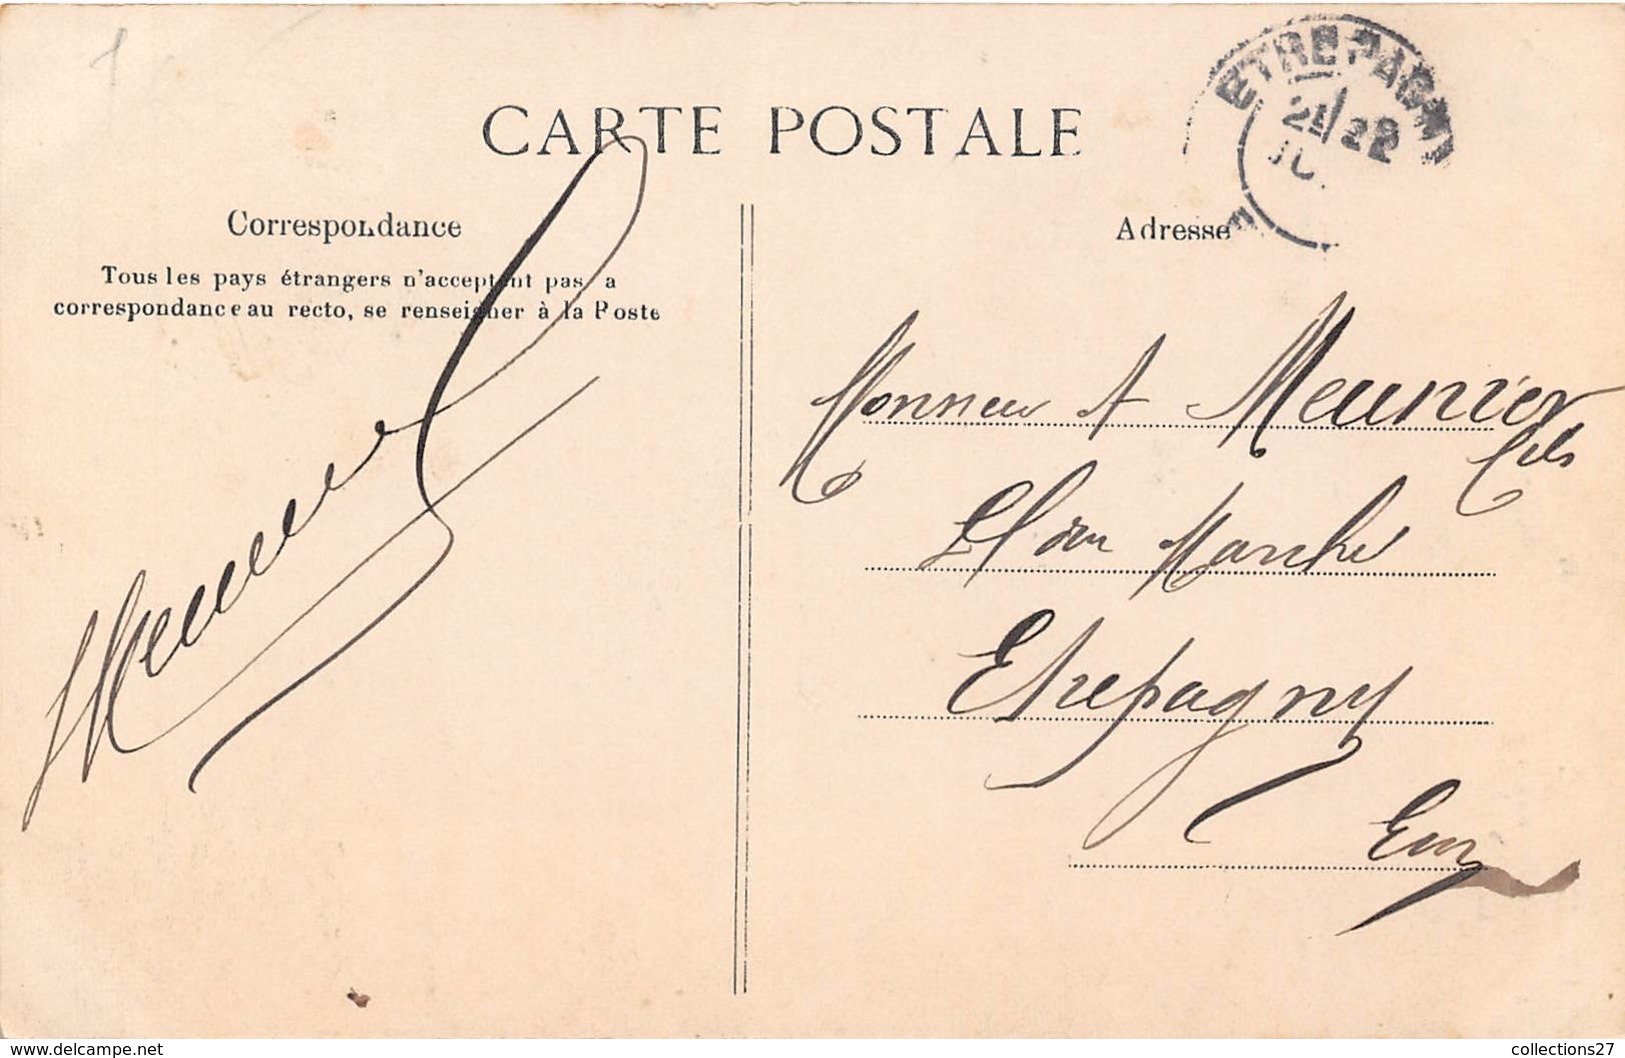 CARTE POSTALE
ETREPAGNY
21/22
Correspondance
Adresse
Tous les pays étrangers n'acceptent pas a
correspondance au recto, se renseigner à la Poste
Monsieur A Meunier
fils
Pl du Marché
Etrepagny
Eure
www.delcampe.net
collections27